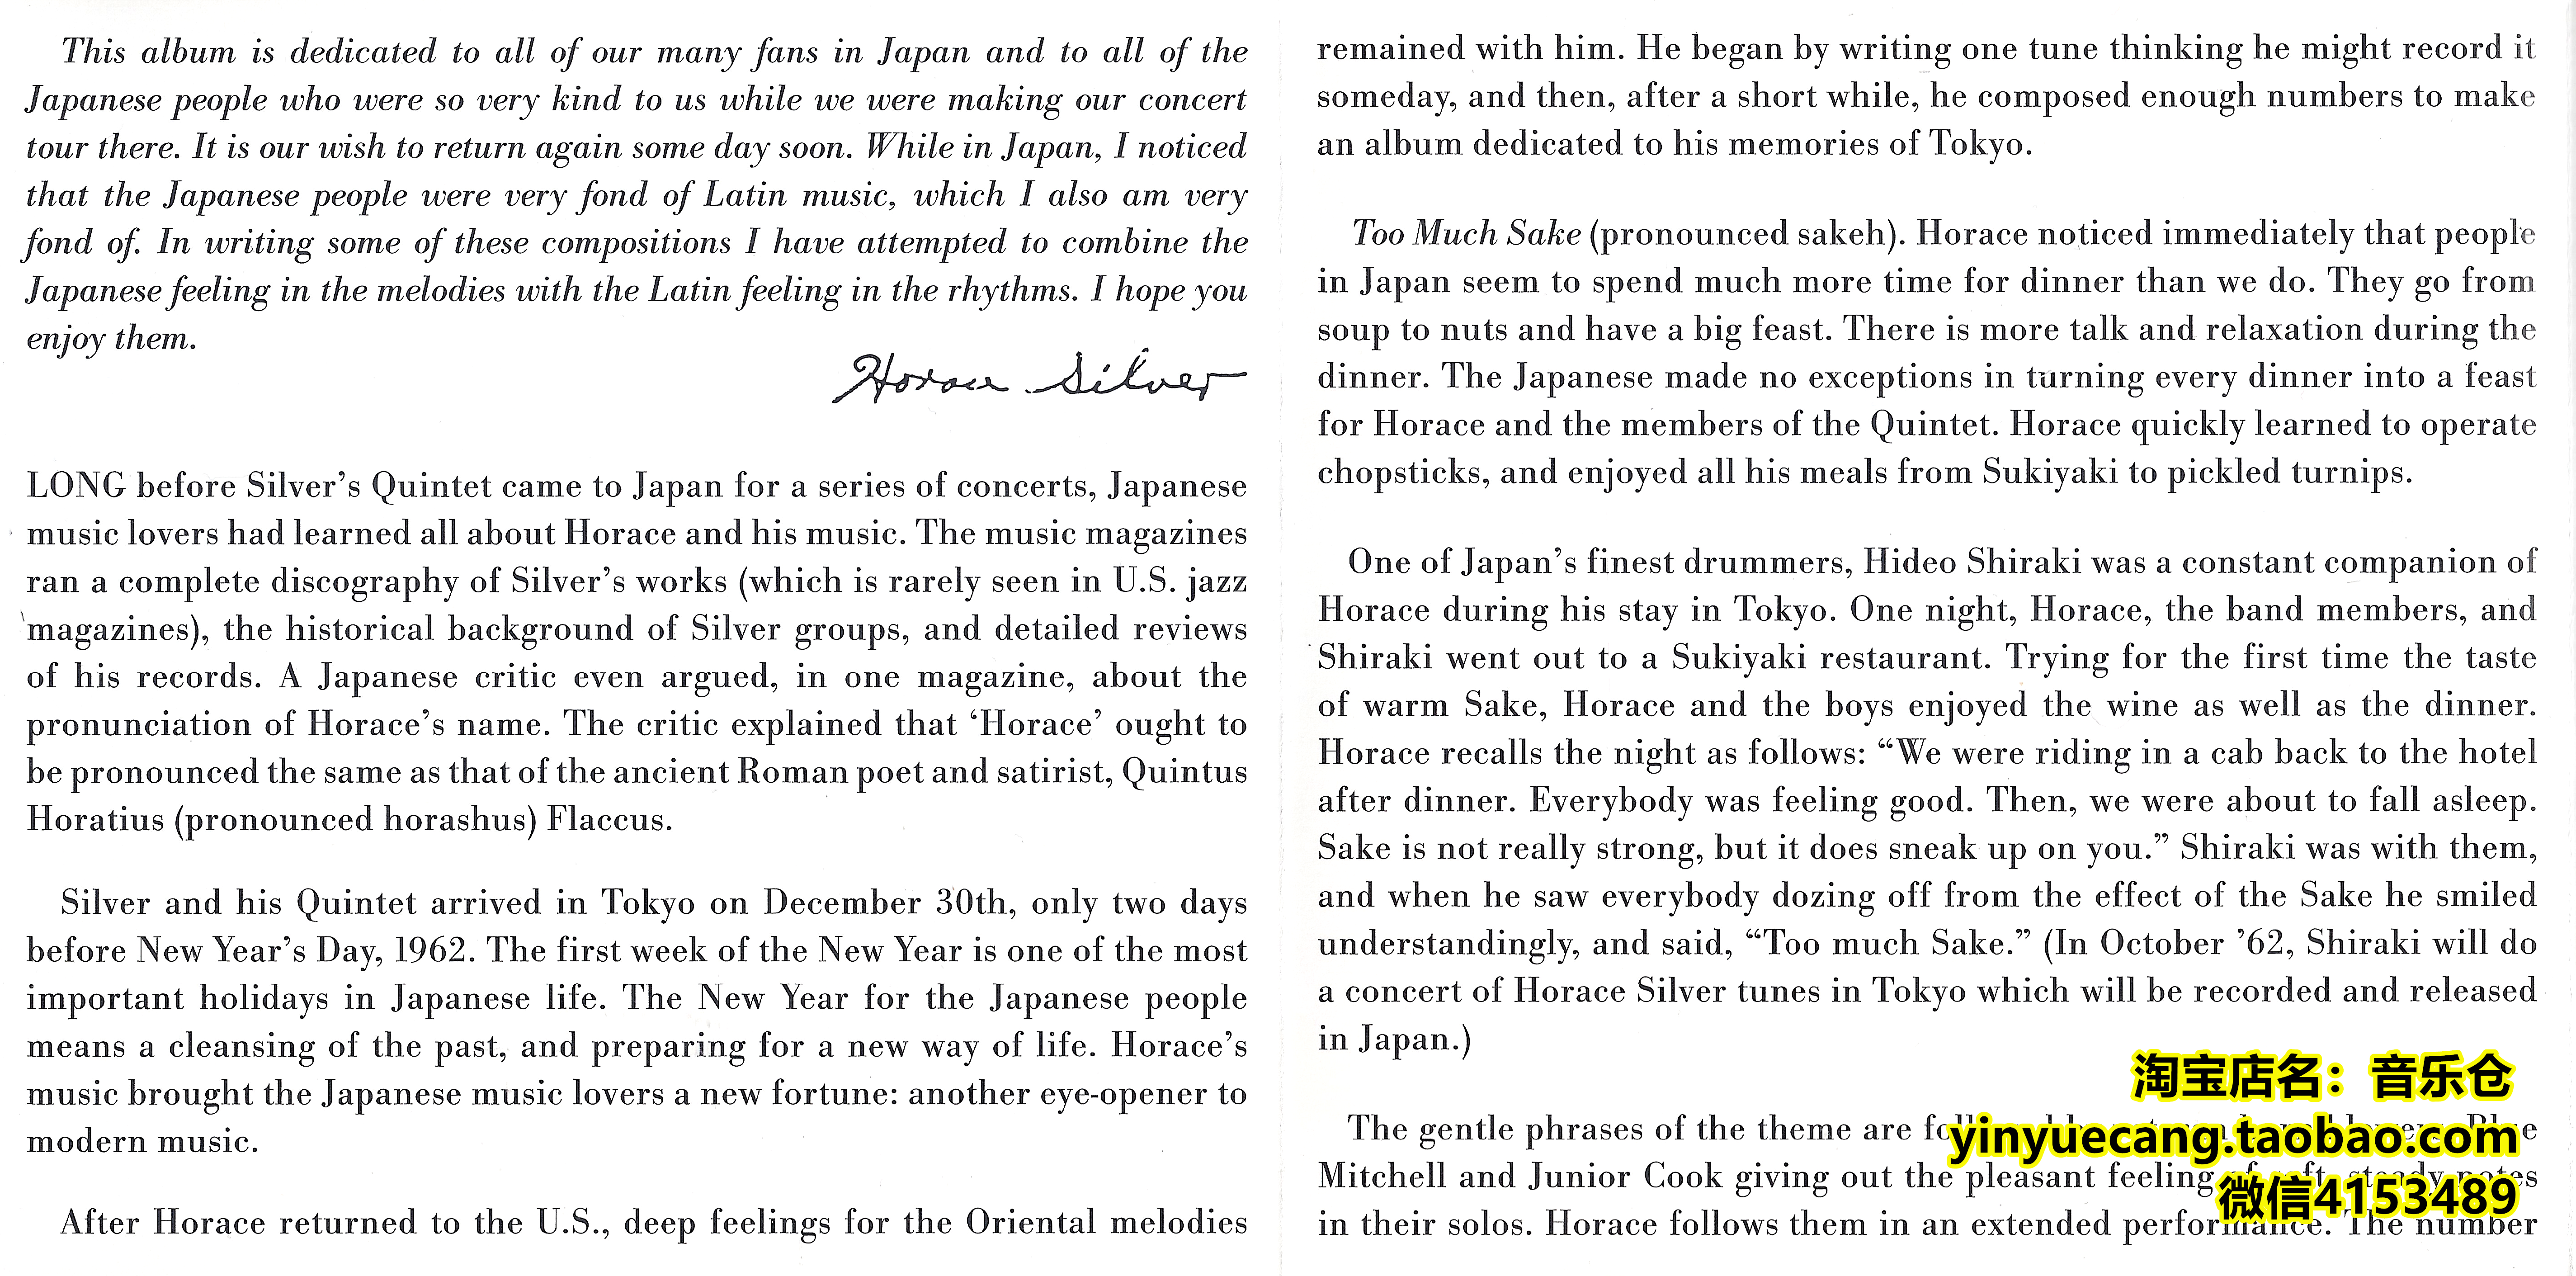 This album is dedicated to all of our many fans in Japan and to all of the
Japanese people who were so very kind to us while we were making our concert
tour there. It is our wish to return again some day soon. While in Japan, I noticed
that the Japanese people were very fond of Latin music, which I also am very
fond of. In writing some of these compositions I have attempted to combine the
Japanese feeling in the melodies with the Latin feeling in the rhythms. I hope you
enjoy them.
Horace Silver
LONG before Silver's Quintet came to Japan for a series of concerts, Japanese
music lovers had learned all about Horace and his music. The music magazines
ran a complete discography of Silver's works (which is rarely seen in U.S. jazz
magazines), the historical background of Silver groups, and detailed reviews
of his records. A Japanese critic even argued, in one magazine, about the
pronunciation of Horace's name. The critic explained that ‘Horace’ ought to
be pronounced the same as that of the ancient Roman poet and satirist, Quintus
Horatius (pronounced horashus) Flaccus.
Silver and his Quintet arrived in Tokyo on December 30th, only two days
before New Year's Day, 1962. The first week of the New Year is one of the most
important holidays in Japanese life. The New Year for the Japanese people
means a cleansing of the past, and preparing for a new way of life. Horace's
music brought the Japanese music lovers a new fortune: another eye-opener to
modern music.
After Horace returned to the U.S., deep feelings for the Oriental melodies
remained with him. He began by writing one tune thinking he might record it
someday, and then, after a short while, he composed enough numbers to make
an album dedicated to his memories of Tokyo.
Too Much Sake (pronounced sakeh). Horace noticed immediately that people
in Japan seem to spend much more time for dinner than we do. They go from
soup to nuts and have a big feast. There is more talk and relaxation during the
dinner. The Japanese made no exceptions in turning every dinner into a feast
for Horace and the members of the Quintet. Horace quickly learned to operate
chopsticks, and enjoyed all his meals from Sukiyaki to pickled turnips.
One of Japan's finest drummers, Hideo Shiraki was a constant companion of
Horace during his stay in Tokyo. One night, Horace, the band members, and
Shiraki went out to a Sukiyaki restaurant. Trying for the first time the taste
of warm Sake, Horace and the boys enjoyed the wine as well as the dinner.
Horace recalls the night as follows: “We were riding in a cab back to the hotel
after dinner. Everybody was feeling good. Then, we were about to fall asleep.
Sake is not really strong, but it does sneak up on you.” Shiraki was with them,
and when he saw everybody dozing off from the effect of the Sake he smiled
understandingly, and said, “Too much Sake.” (In October ’62, Shiraki will do
a concert of Horace Silver tunes in Tokyo which will be recorded and released
in Japan.)
The gentle phrases of the theme are Blue
Mitchell and Junior Cook giving out the pleasant feeling of soft, steady notes
in their solos. Horace follows them in an extended performance. The number
淘宝店名：音乐仓
yinyuecang.taobao.com
微信4153489